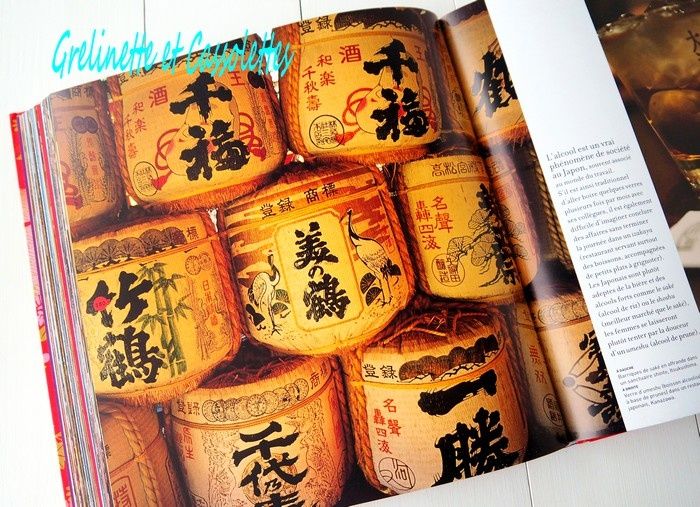 Grelinette et Cassolettes
登録 商標
酒
和楽
千秋
壽
千福
登録
酒
和楽
千秋壽
千福
鶴
登録 商標
美の鶴
名聲
轟四海
登録 商標
竹鶴
登録
千代乃
登録
名聲
轟四海
一勝
L'alcool est un vrai
phénomène de société
au Japon, souvent associé
au monde du travail.
S'il est ainsi traditionnel
d'aller boire quelques verres
plusieurs fois par mois avec
ses collègues, il est également
difficile d'imaginer conclure
des affaires sans terminer
la journée dans un izakaya
(restaurant servant surtout
des boissons, accompagnées
de petits plats à grignoter).
Les Japonais sont plutôt
adeptes de la bière et des
alcools forts comme le saké
(alcool de riz) ou le shochu
(meilleur marché que le saké),
les femmes se laisseront
plutôt tenter par la douceur
d'un umeshu (alcool de prune).
À GAUCHE
Barriques de saké en offrande dans
un sanctuaire shinto, Itsukushima.
À DROITE
Verre d'umeshu (boisson alcoolisée
à base de prunes) dans un restaurant
japonais, Kanazawa.